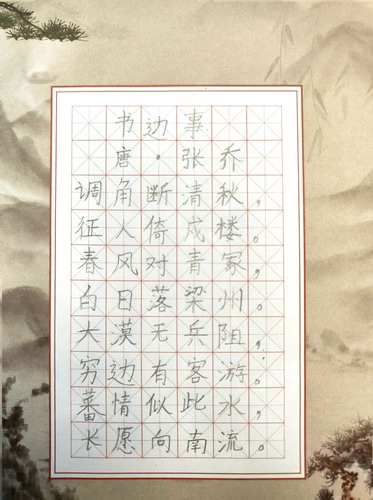 书边事
唐·张乔
调角断清秋，
征人倚戍楼。
春风对青冢，
白日落梁州。
大漠无兵阻，
穷边有客游。
蕃情似此水，
长愿向南流。